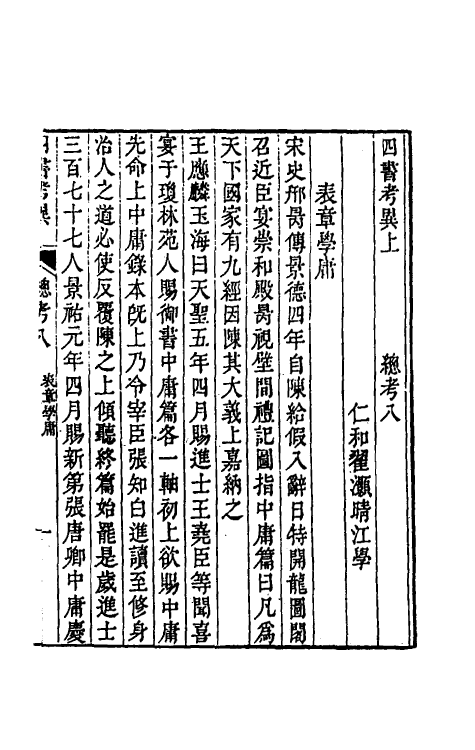 四書考異上　總考八
仁和翟灝晴江學
表章學庸
宋史邢昺傳景德四年自陳給假入辭日特開龍圖閣
召近臣宴崇和殿昺視壁間禮記圖指中庸篇曰凡爲
天下國家有九經因陳其大義上嘉納之
王應麟玉海曰天聖五年四月賜進士王堯臣等聞喜
宴于瓊林苑人賜御書中庸篇各一軸初上欲賜中庸
先命上中庸錄本旣上乃令宰臣張知白進讀至修身
治人之道必使反覆陳之上傾聽終篇始罷是歲進士
三百七十七人景祐元年四月賜新第張唐卿中庸慶
四書考異　總考八　表章學庸　一